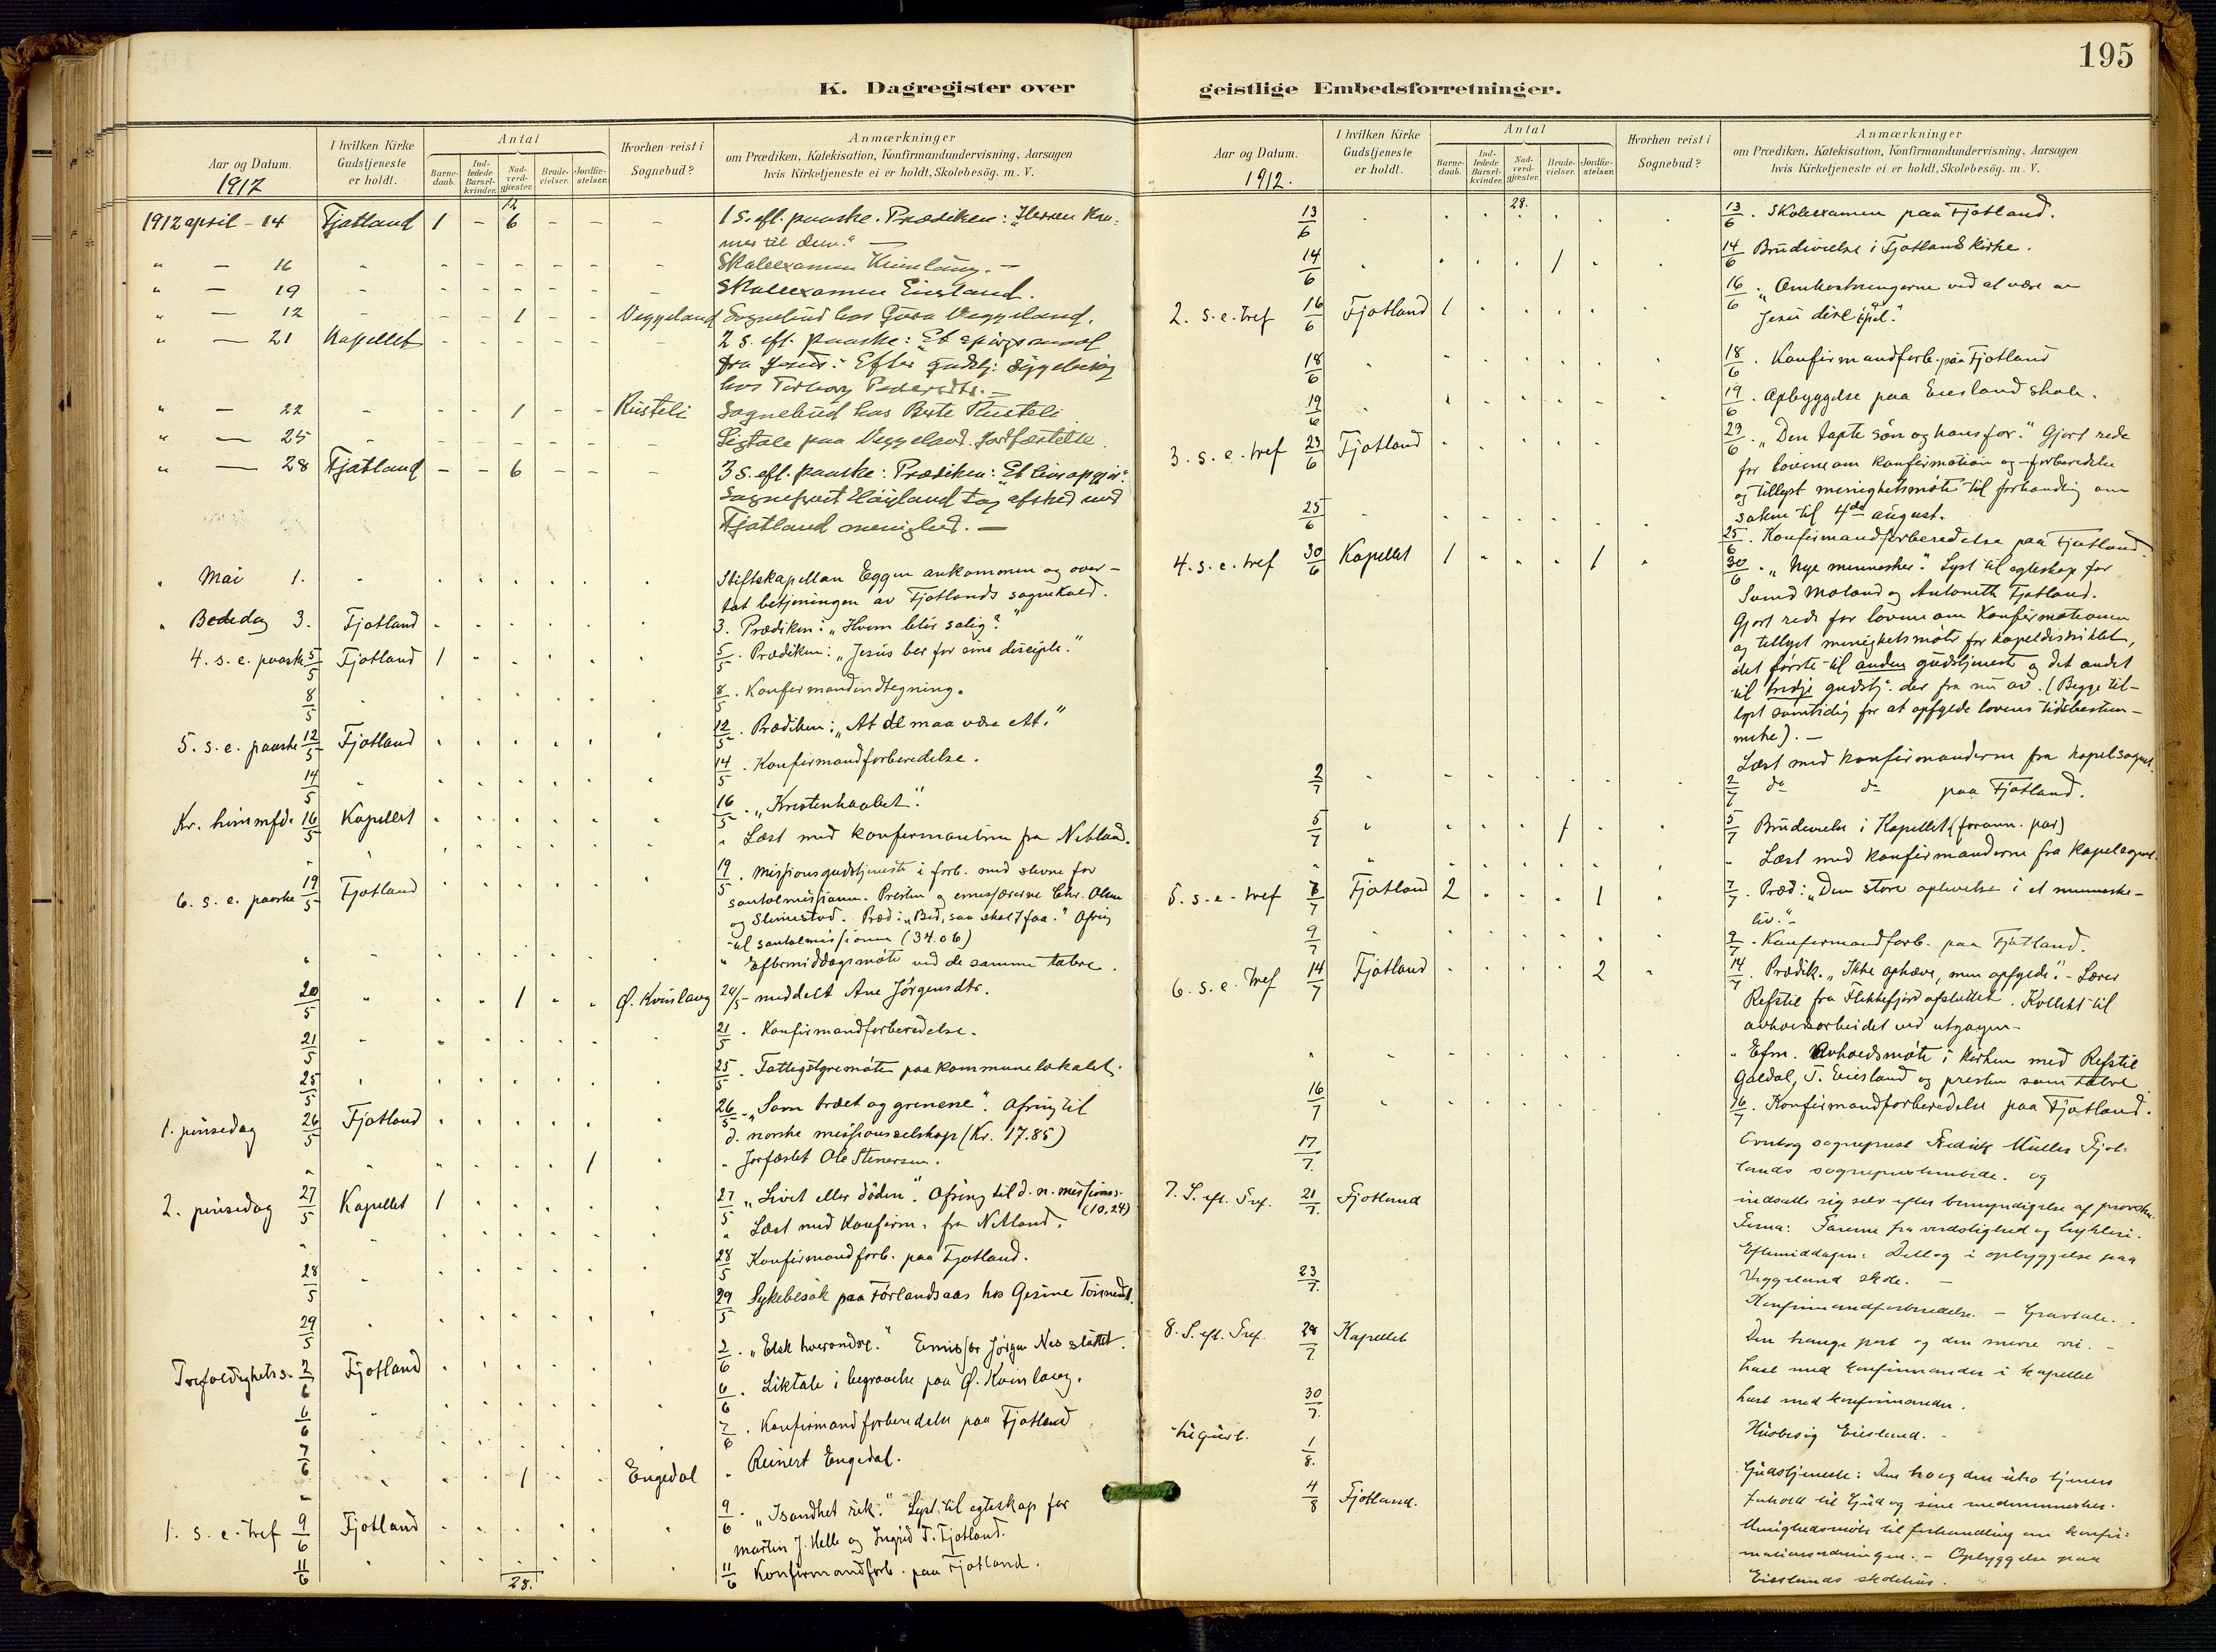 195
K. Dagregister over geistlige Embedsforretninger.
Aar og Datum.
1912
I hvilken Kirke Gudstjeneste er holdt.
Antal
Barnedaab.
Indledede Barselkvinder.
Nadverdgjæster.
Brudevielser.
Jordfæstelser.
Hvorhen reist i Sognebud?
Anmærkninger
om Prædiken, Katekisation, Konfirmandundervisning, Aarsagen
hvis Kirketjeneste ei er holdt, Skolebesög. m. V.
12
1912 april - 14 Fjotland 1 - 6 - - - 1 S. eft. paaske. Prædiken: "Herren kommer til dem." —
" — 16 - - - - - - - Skoleexamen Kvinlaug. —
" — 19 - - - - - - - Skoleexamen Eiesland.
" — 12 - - 1 - - Veggeland Sognebud hos Gura Veggeland.
" — 21 Kapellet - - - - - - 2 S. eft. paaske: Et spörgsmaal
fra Jesus: Efter gudstj: Sygebesög
hos Torborg Pedersdtr. —
" — 22 - - - 1 - - Rusteli Sognebud hos Berte Rusteli
" — 25 - - - - - - - Ligtale paa Veggeland. Jordfæstelse.
" — 28 Fjotland - - 6 - - - 3 S. eft. paaske: Prædiken: "Et livsopgjör".
Sogneprest Höyland tog afsked med
Fjotland menighed. —
" Mai 1. Stiftskapellan Eggen ankommen og over-
tat betjeningen av Fjotlands sognekald.
" Bededag 3. Fjotland 3. Prædiken: "Hvem blir salig?"
4. s. e. paaske 5/5 Fjotland 1 5/5. Prædiken: "Jesus ber for sine disciple."
8/5 8/5. Konfirmandindtegning.
5. s. e. paaske 12/5 Fjotland 12/5. Prædiken: "At de maa være ett."
14/5 14/5. Konfirmandforberedelse.
Kr. himmfd. 16/5 Kapellet 16/5. "Kristenhaabet".
" Læst med konfirmanterne fra Netland.
6. s. e. paaske 19/5 Fjotland 19/5. Missionsgudstjeneste i forb. med stevne for
santalmissionen. Presten og emissærerne Chr. Olsen
og Slimestad. Præd: "Bed, saa skal I faa." Ofring
til santalmissionen (34.06)
" Eftermiddagsmöte ved de samme talere.
20/5 1 Ø. Kvinlaug 20/5 meddelt Ane Jörgensdtr.
21/5 21/5. Konfirmandforberedelse.
25/5 25/5. Fattigstyremöte paa kommunelokalet.
1. pinsedag 26/5 Fjotland 26/5. "Som træet og grenene". Ofring til
d. norske missionsselskap (Kr. 17.85)
" 1 " Jorfæstet Ole Stenersen.
2. pinsedag 27/5 Kapellet 1 27/5 "Livet eller döden". Ofring til d. n. missions. (10,24)
" Læst med konfirm. fra Netland.
28/5 28/5 Konfirmandforb. paa Fjotland.
29/5 29/5 Sykebesök paa Förlandsaas hos Gesine
Trefoldighets s. 2/6 Fjotland 2/6. "Elsk hverandre." Emissær Jörgen Nes sluttet.
6/6 6/6. Liktale i begravelse paa Ø. Kvinlaug.
7/6 7/6. Konfirmandforberedelse paa Fjotland
" 1 Engedal " Reinert Engedal.
1. s. e. tref 9/6 Fjotland 9/6. "Isandhet rik." Lyst til egteskap for
Martin J. Helle og Ingrid T. Fjotland.
11/6 11/6 Konfirmandforb. paa Fjotland.
28.
Aar og Datum.
1912.
I hvilken Kirke Gudstjeneste er holdt.
Antal
Barnedaab.
Indledede Barselkvinder.
Nadverdgjæster.
Brudevielser.
Jordfæstelser.
Hvorhen reist i Sognebud?
Anmærkninger
om Prædiken, Katekisation, Konfirmandundervisning, Aarsagen
hvis Kirketjeneste ei er holdt, Skolebesög. m. V.
28.
13/6 13/6. Skoleexamen paa Fjotland.
14/6 1 14/6 Brudevielse i Fjotland kirke.
2. s. e. tref 16/6 Fjotland 1 16/6. "Omkostningerne ved at være en
Jesu discipel."
18/6 18/6. Konfirmandforb. paa Fjotland
19/6 19/6. Opbyggelse paa Eiesland skole.
3. s. e. tref 23/6 Fjotland 23/6. "Den tapte sön og hans far." Gjort rede
for lovene om konfirmation og -forberedelse
og tillyst menighetsmöte til forhandling om
saken til 4de august.
25/6 25/6. Konfirmandforberedelse paa Fjotland.
4. s. e. tref 30/6 Kapellet 1 1 30/6. "Nye mennesker." Lyst til egteskap for
Svend Moland og Antoneth Fjotland.
Gjort rede for lovene om konfirmationen
og tillyst menighetsmöte for kapeldistriktet,
det förste til anden gudstjeneste og det andet
til tredje gudstj. der fra nu av. (Begge til-
lyst samtidig for at opfylde lovens tidsbestem-
melse). —
Læst med konfirmanderne fra kapelsognet.
2/7 2/7 do do paa Fjotland.
5/7 1 5/7 Brudevielse i Kapellet (forann. par)
" Læst med konfirmanderne fra kapelsognet.
5. s. e. tref 7/7 Fjotland 2 1 7/7. Præd: "Den store oplevelse i et menneske-
liv."
9/7 9/7. Konfirmandforb. paa Fjotland.
6. s. e. tref 14/7 Fjotland 2 14/7. Prædik. "Ikke ophæve, men opfylde". - Lærer
Refstie fra Flekkefjord afsluttet. Kollekt til
avholdsarbeidet ved utgangen-
" Efm. Avholdsmöte i kirken med Refstie
Galdal, T. Eiesland og presten som talere.
16/7 16/7. Konfirmandforberedelse paa Fjotland.
17/7. Overtog sogneprest Fredrik Müller Fjot-
lands sogneprestembede. og
7. S. eft. Tref. 21/7. Fjotland indsatte sig selv efter bemyndigelse af provsten.
Tema: Farerne fra verdslighed og hykleri.
Eftermiddagen: Deltog i opbyggelse paa
Veggeland skole. —
23/7. Konfirmandforberedelse. — Gravtale. -
8. S. eft. Tref. 28/7. Kapellet Den trange port og den smale vei. -
Læst med konfirmander i kapellet
30/7. Læst med konfirmander.
1/8. Husbesög Eiesland. -
4/8 Fjotland. Gudstjeneste: Den tro og den utro tjeners
forhold til Gud og sine medmennesker.
Menighedsmöte til forhandling om konfir=
mationsordningen. - Opbyggelse paa
Eieslands skolehus.